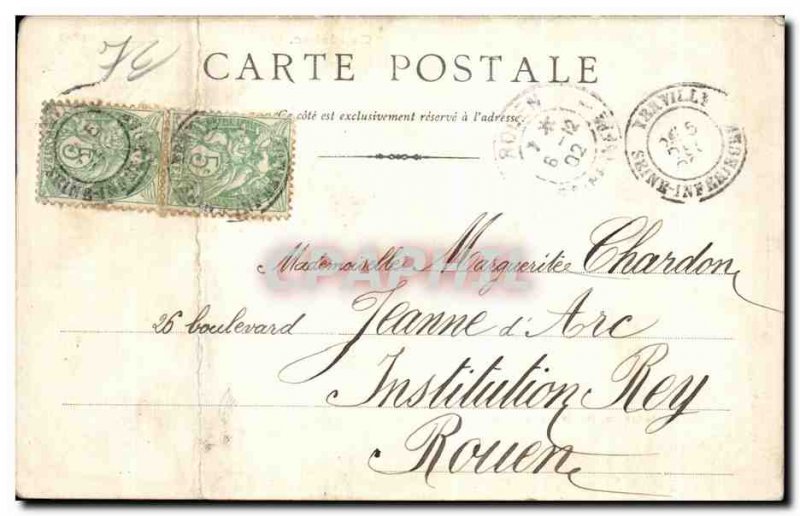 CARTE POSTALE
Ce côté est exclusivement réservé à l'adresse
5
5
ROUEN
6 -12
02
YERVILLE
5
SEINE-INFÉRIEURE
Mademoiselle Marguerite Chardon
26 boulevard Jeanne d'Arc
Institution Rey
Rouen